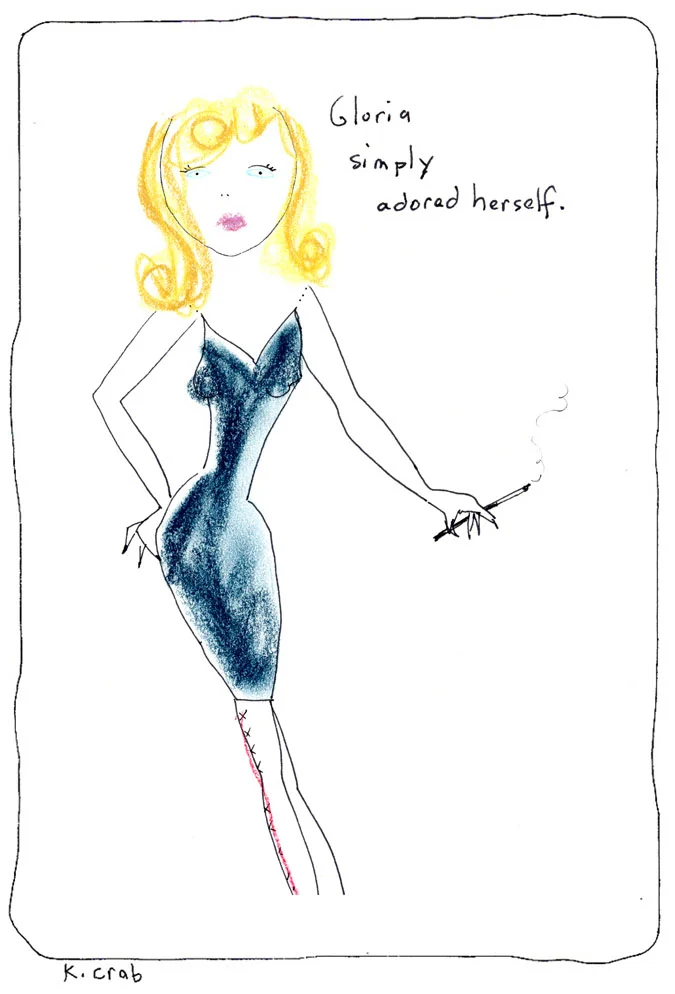 Gloria
simply
adored herself.
K. crab